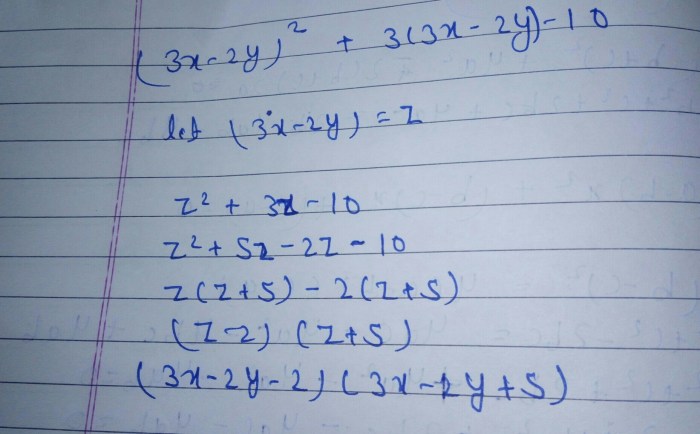 (3x-2y)² + 3(3x-2y)-10
let (3x-2y) = z
z² + 3z - 10
z² + 5z - 2z - 10
z(z+5) - 2(z+5)
(z-2) (z+5)
(3x-2y-2) (3x-2y+5)